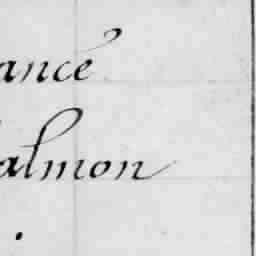 ance
almon
.